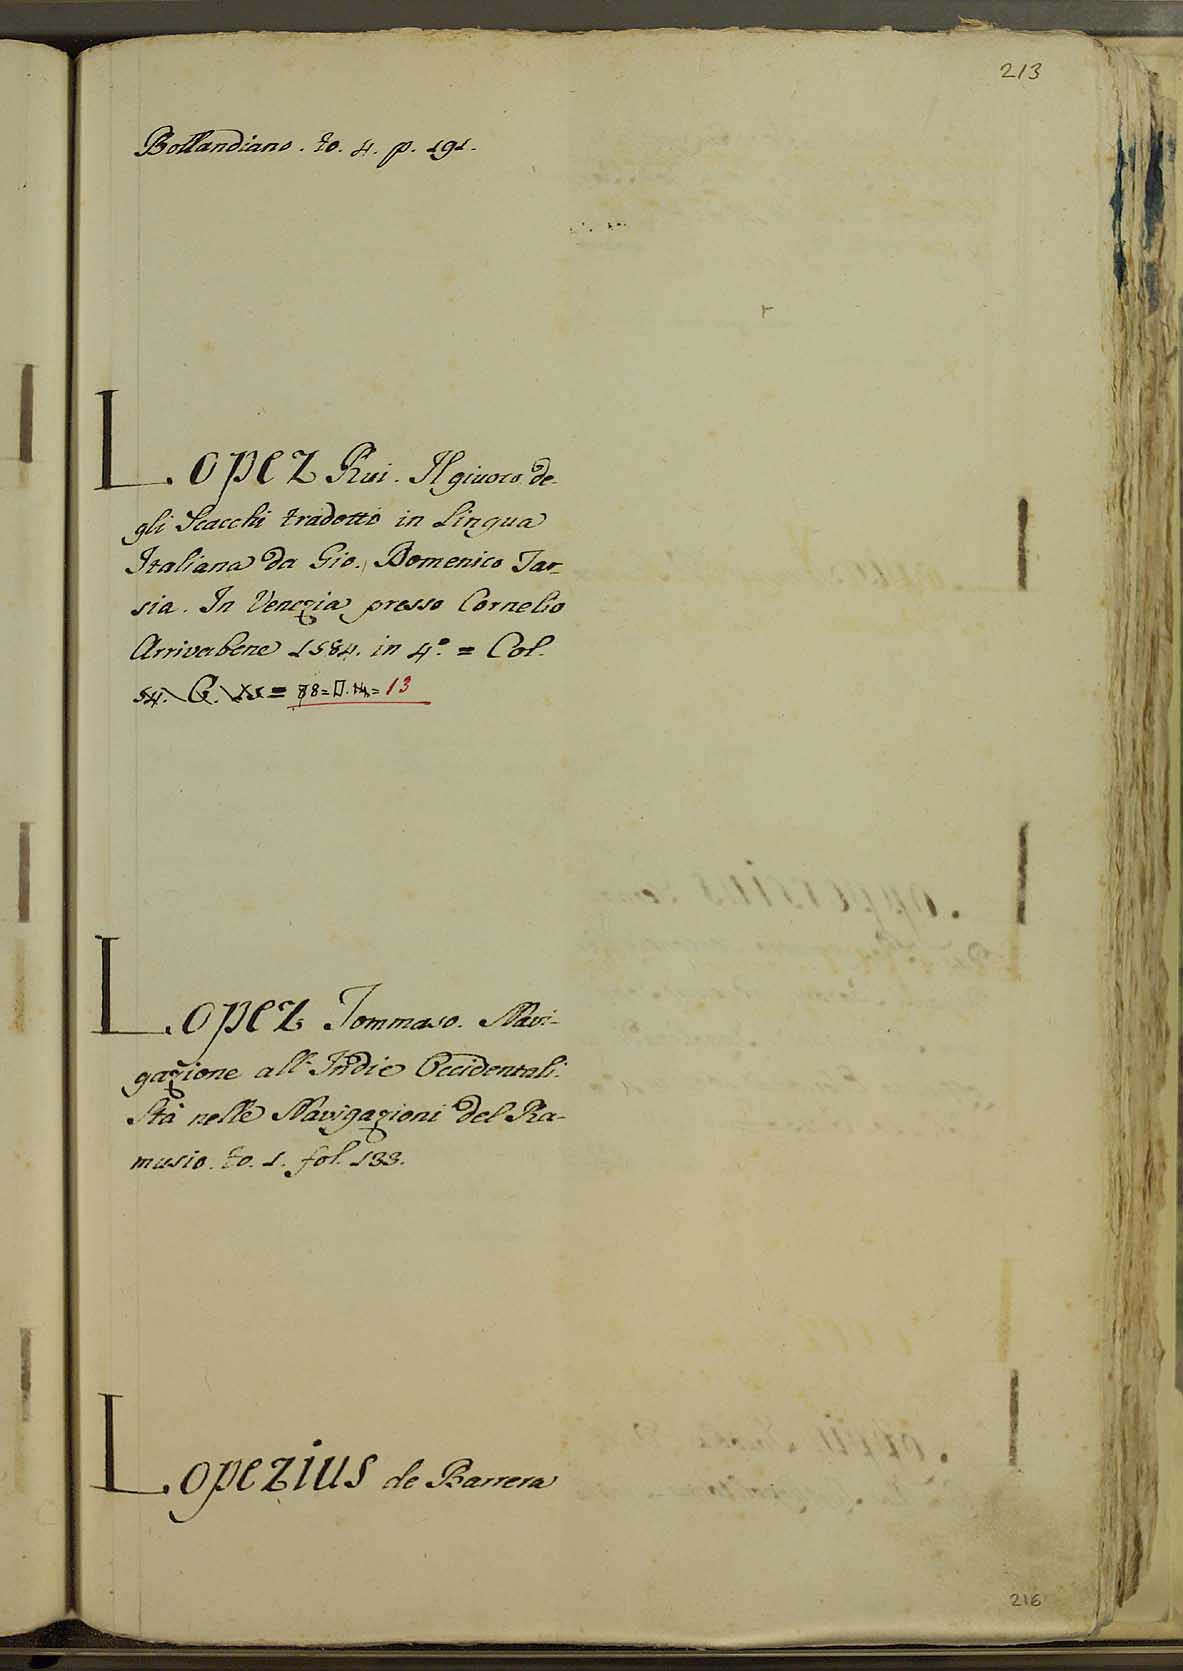 213
Bollandiano. to. 4. p. 191.
Lopez Rui. Il giuoco de-
gli Scacchi tradotto in Lingua
Italiana da Gio. Domenico Tar-
sia. In Venezia presso Cornelio
Arrivabene 1584. in 4.º = Col.
54. G. 15 = 78 = D. 14 = 13
Lopez Tommaso. Navi-
gazione all'Indie Occidentali.
Stà nelle Navigazioni del Ra-
musio. to. 1. fol. 133.
Lopezius de Barrera
216